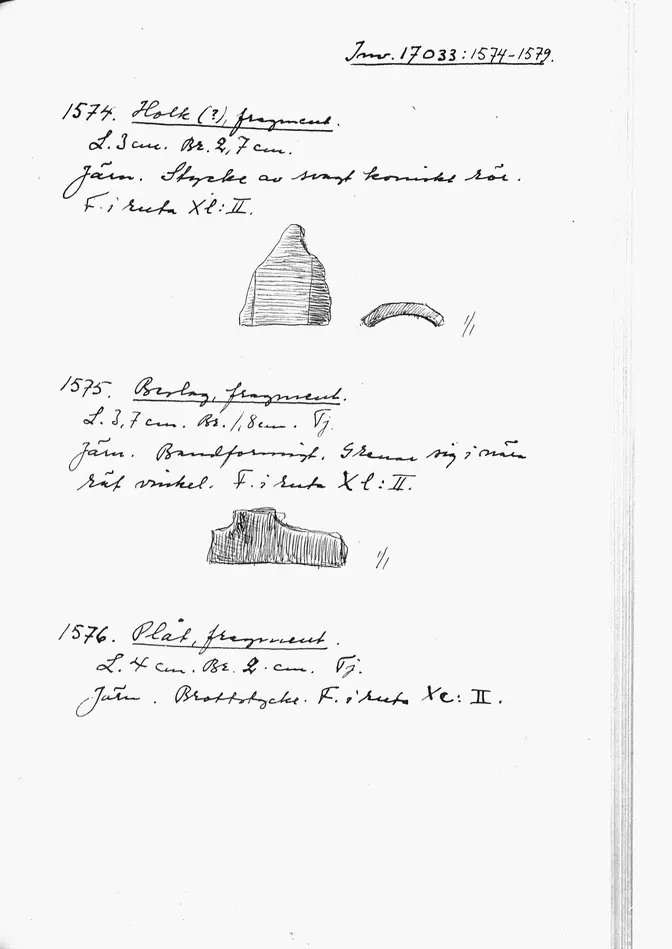 Inv. 17033:1574-1579.
1574. Holk (?), fragment.
L. 3 cm. Br. 2,7 cm.
Järn. Stycke av svagt koniskt rör.
F. i ruta Xl:II.
1/1
1575. Beslag, fragment.
L. 3,7 cm. Br. 1,8 cm. Tj.
Järn. Bandformigt. Grenar sig i nära
rät vinkel. F. i ruta Xl:II.
1/1
1576. Plåt, fragment.
L. 4 cm. Br. 2 cm. Tj.
Järn. Brottstycke. F. i ruta Xc: II.